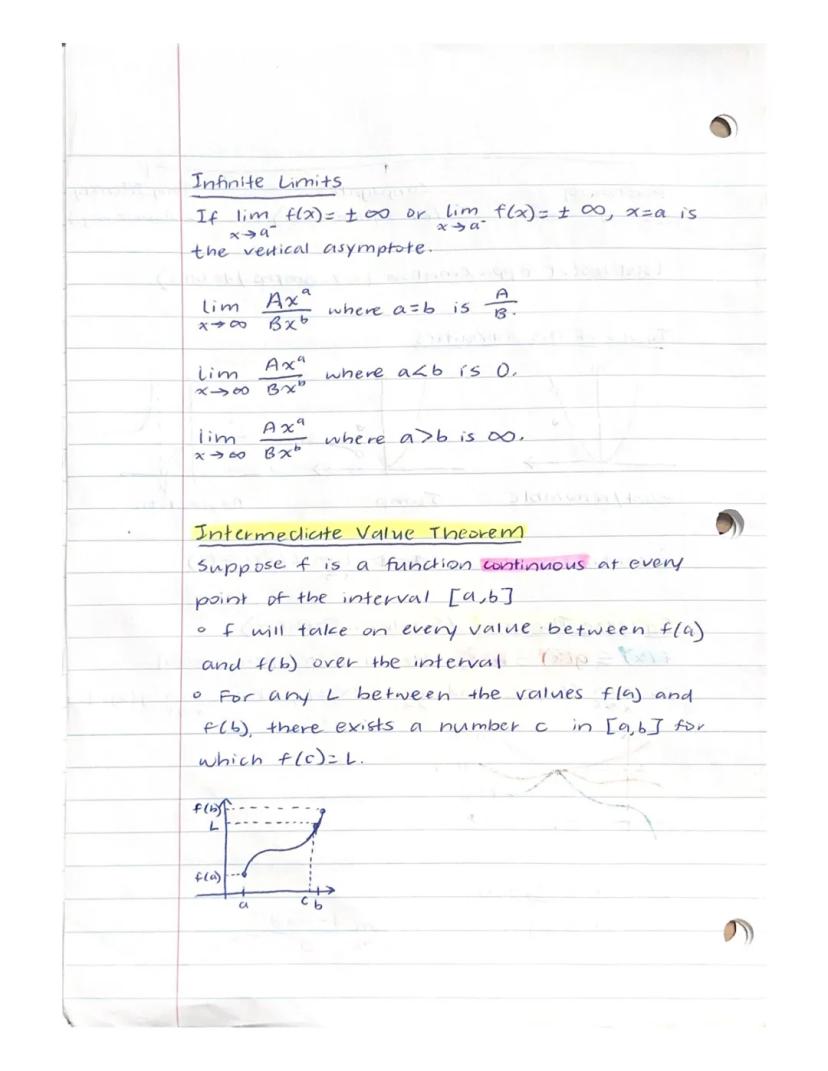 Infinite Limits
If lim x→a⁻ f(x) = ± ∞ or lim x→a⁻ f(x) = ± ∞, x=a is
the vertical asymptote.
lim x→∞ Axᵃ/Bxᵇ where a=b is A/B.
lim x→∞ Axᵃ/Bxᵇ where a<b is 0.
lim x→∞ Axᵃ/Bxᵇ where a>b is ∞.
Intermediate Value Theorem
Suppose f is a function continuous at every
point of the interval [a,b]
° f will take on every value between f(a)
and f(b) over the interval
° For any L between the values f(a) and
f(b), there exists a number c in [a,b] for
which f(c)=L.
f(b)
L
f(a)
a c b